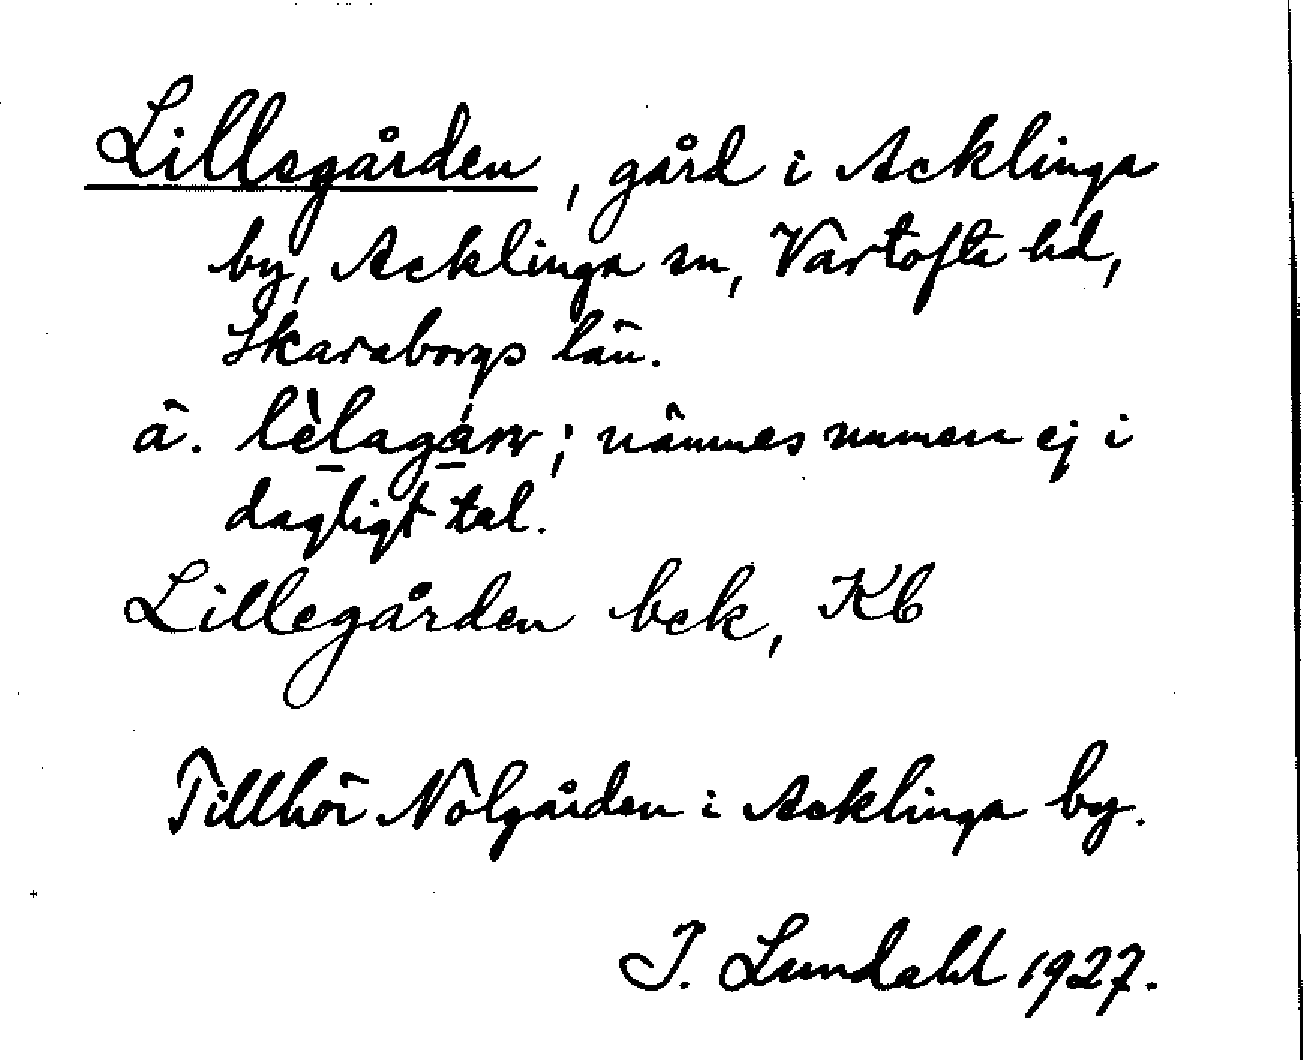 Lillegården, gård i Acklinga
by, Acklinga sn, Vartofta hd,
Skaraborgs län.
ä. lèlagárv; nämnes numera ej i
dagligt tal.
Lillegården bek, Kb
Tillhör Nolgården i Acklinga by.
I. Lundahl 1927.